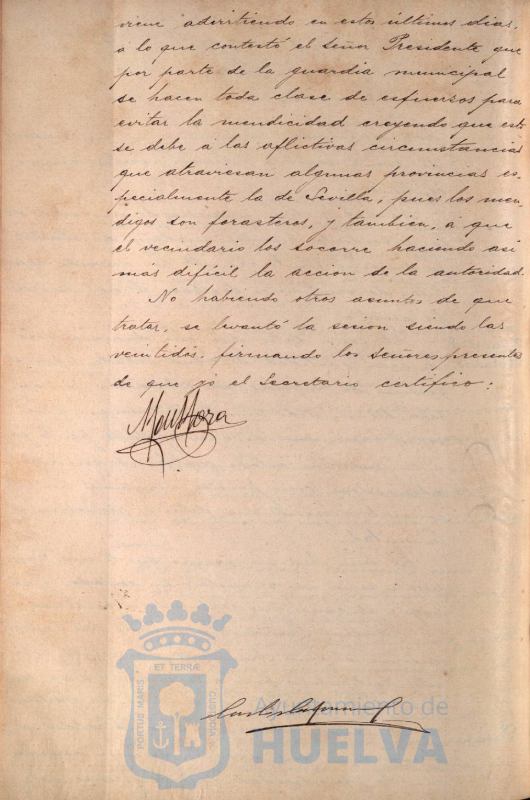 viene adiritiendo en estos últimos dias,
a lo que contestó el señor Presidente que
por parte de la guardia municipal
se hacen toda clase de esfuersos para
evitar la mendicidad creyendo que esto
se debe á las aflictivas circunstancias
que atraviesan algunas provincias es-
pecialmente la de Sevilla, pues los men-
digos son forasteros, y tambien, á que
el vecindario los socorre haciendo asi
más difícil la accion de la autoridad.
No habiendo otros asuntos de que
tratar, se levantó la sesion siendo las
veintidós, firmando los señores presentes
de que yó el Secretario certifico:
ET TERRÆ
PORTUS MARIS
CUSTODIA
Ayuntamiento de
HUELVA